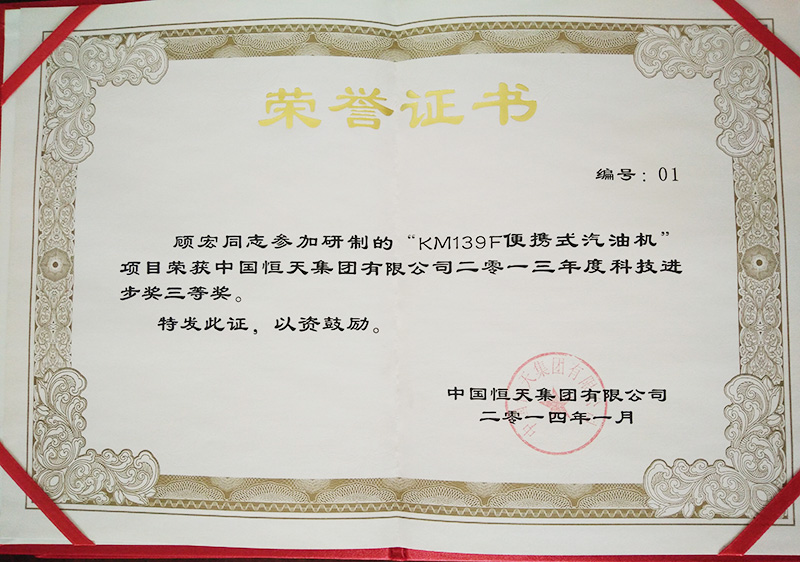 荣誉证书
编号：01
顾宏同志参加研制的“KM139F便携式汽油机”
项目荣获中国恒天集团有限公司二零一三年度科技进
步奖三等奖。
特发此证，以资鼓励。
中国恒天集团有限公司
中国恒天集团有限公司
二零一四年一月